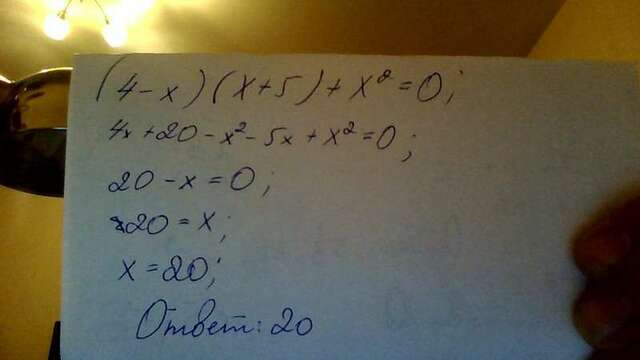 (4-x)(x+5)+x²=0;
4x+20-x²-5x+x²=0;
20-x=0;
20=x;
x=20;
Ответ: 20